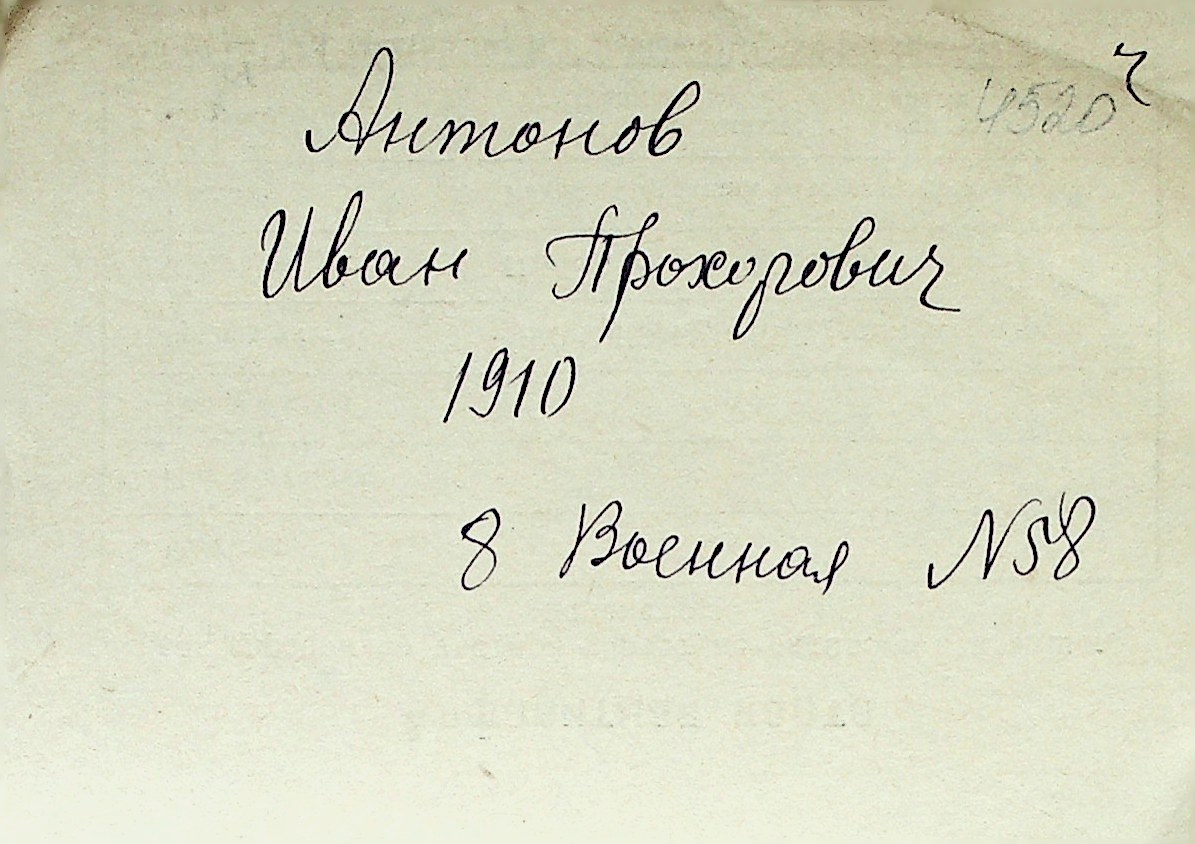 ч
4520
Антонов
Иван Прохорович
1910
8 Военная N58